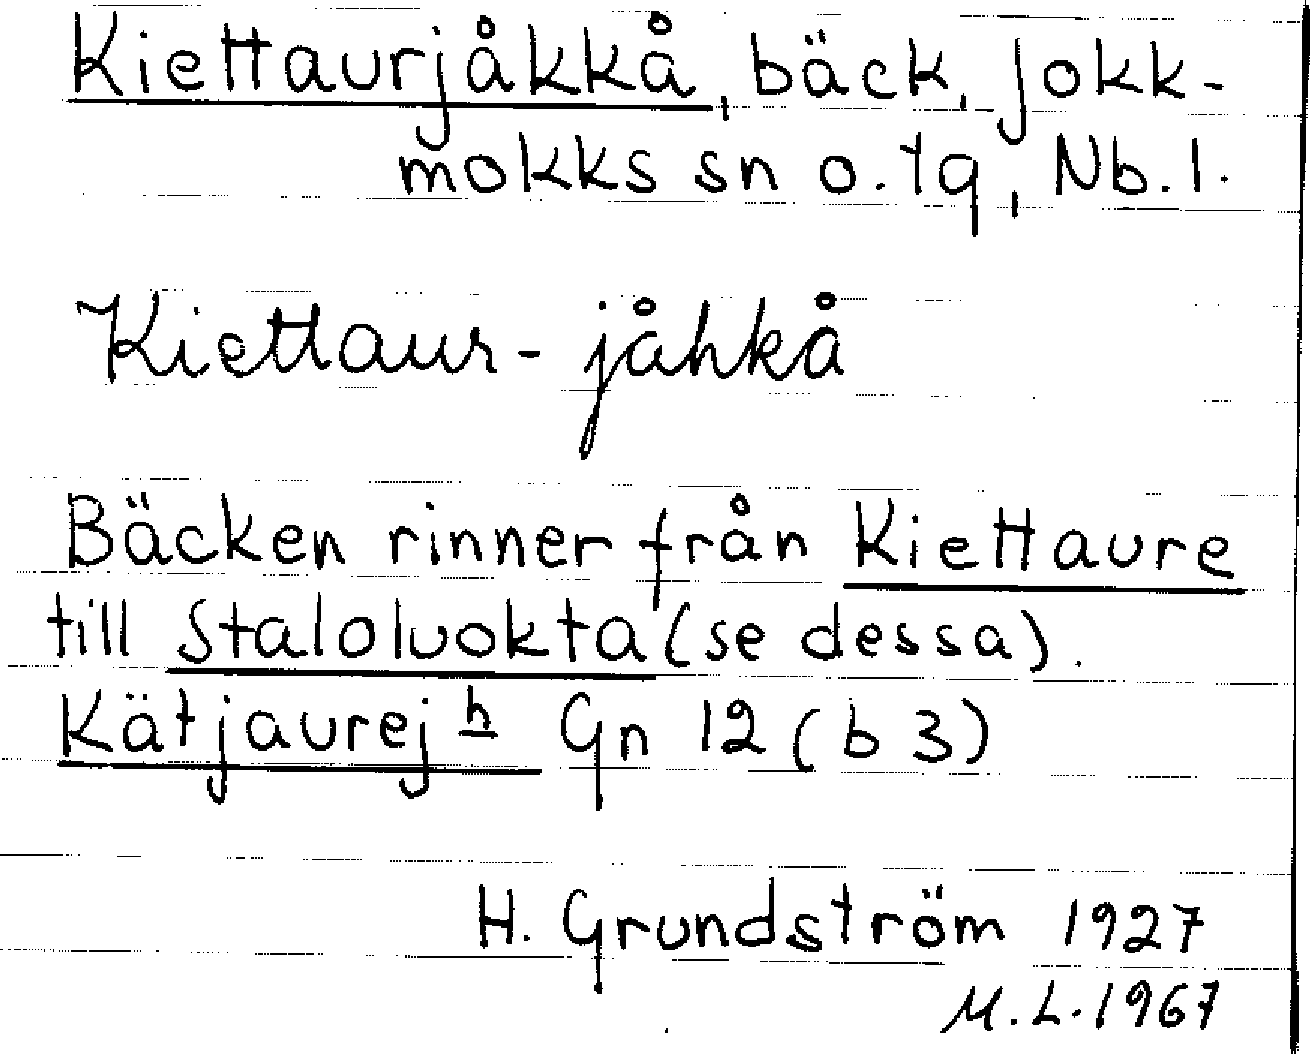 Kiettaurjåkkå, bäck, Jokk-
mokks sn o. tg, Nb. l.
Kiettaur-jåhkå
Bäcken rinner från Kiettaure
till Staloluokta (se dessa).
Kätjaurejh Gn 12 (b 3)
H. Grundström 1927
M.L. 1967